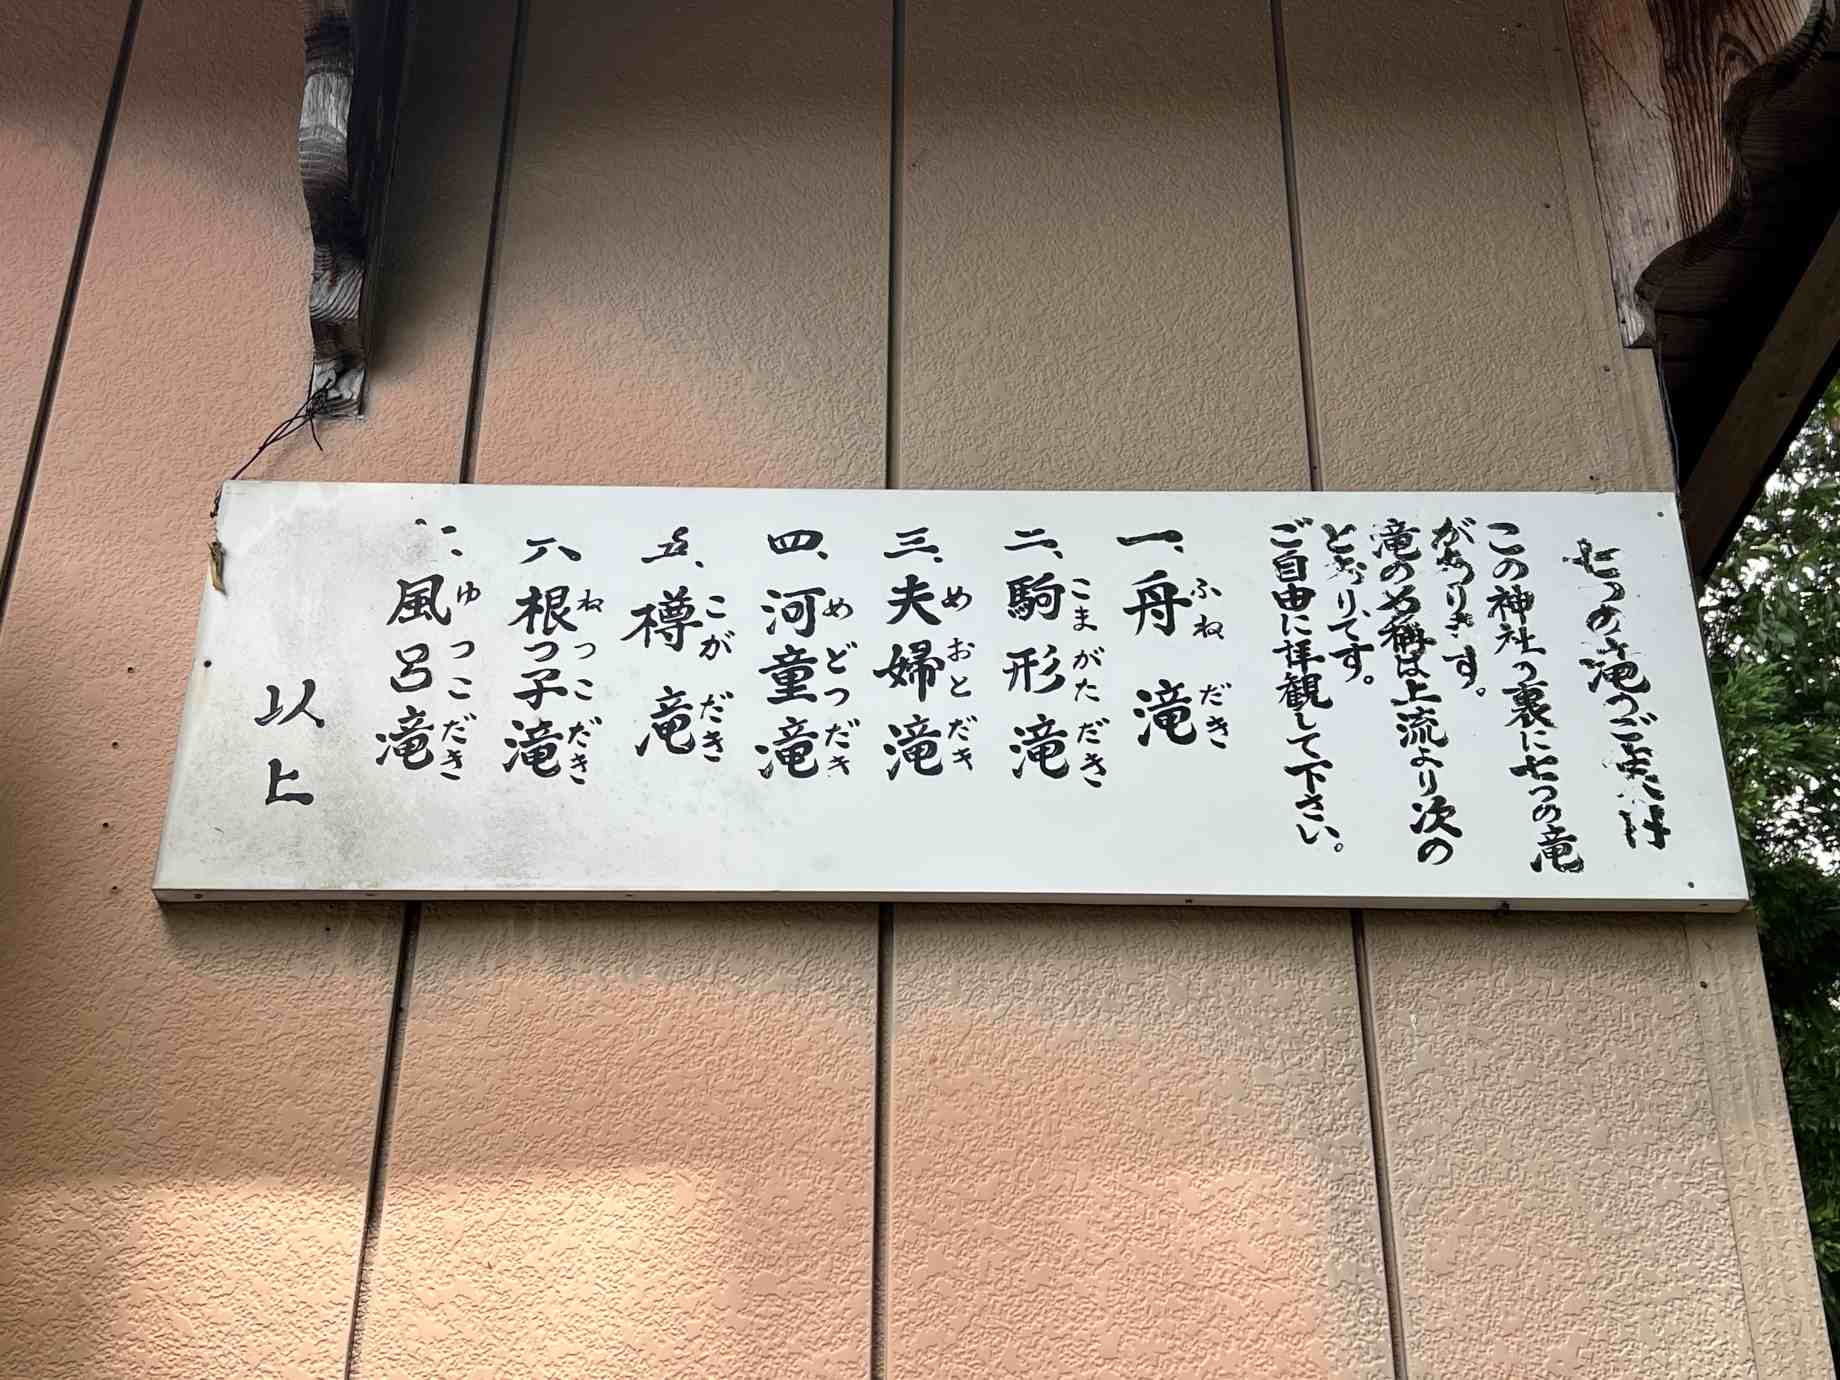 七つの滝のご案内
この神社の裏に七つの滝
があります。
滝の名称は上流より次の
とおりです。
ご自由に拝観して下さい。
一、舟滝
ふねだき
二、駒形滝
こまがただき
三、夫婦滝
めおとだき
四、河童滝
めどつだき
五、樽滝
こがだき
六、根っ子滝
ねっこだき
風呂滝
ゆつこだき
以上